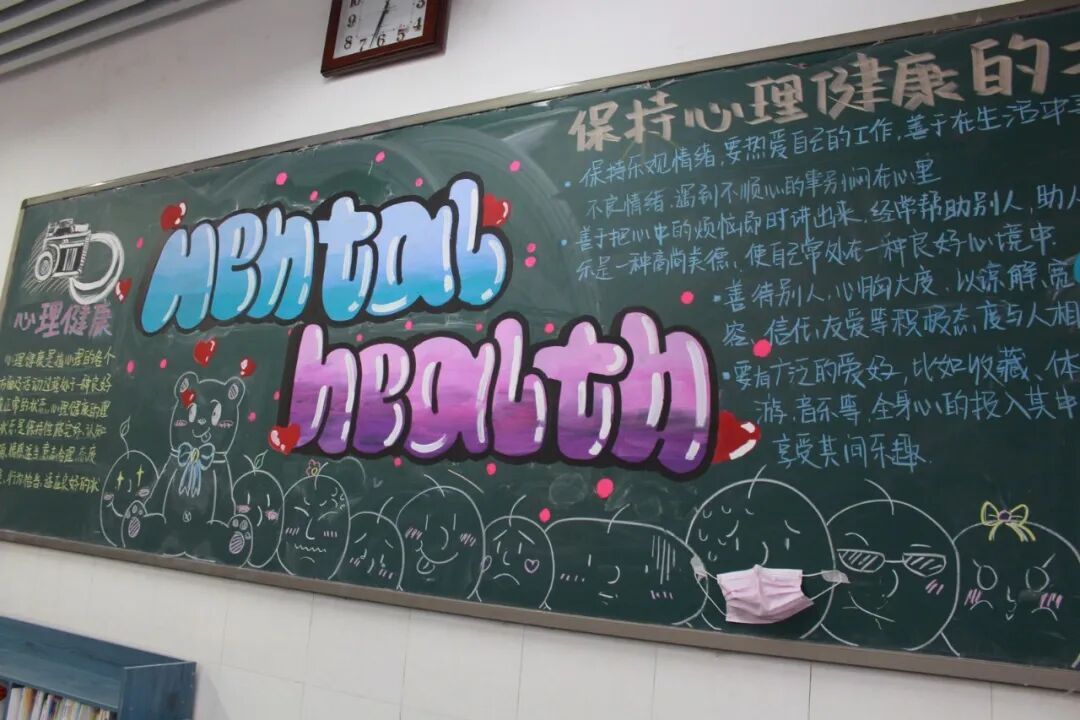 10
9 3
8 4
7 6 5
心理健康
心理健康是指心理的各个
方面及活动过程处于一种良好
正常的状态,心理健康的理
状态是保持性格完好、认知
情感适当、意志合理、态度
行为恰当、适应良好的状
Mental
health
保持心理健康的
· 保持乐观情绪,要热爱自己的工作,善于在生活中
不良情绪,遇到不顺心的事别闷在心里
· 善于把心中的烦恼即时讲出来,经常帮助别人,助人
乐是一种高尚美德、使自己常处在一种良好心境中.
· 善待别人,心胸大度,以谅解、宽
容、信任、友爱等积极态度与人相
· 要有广泛的爱好,比如收藏、体
游、音乐等,全身心的投入其中
享受其间乐趣.